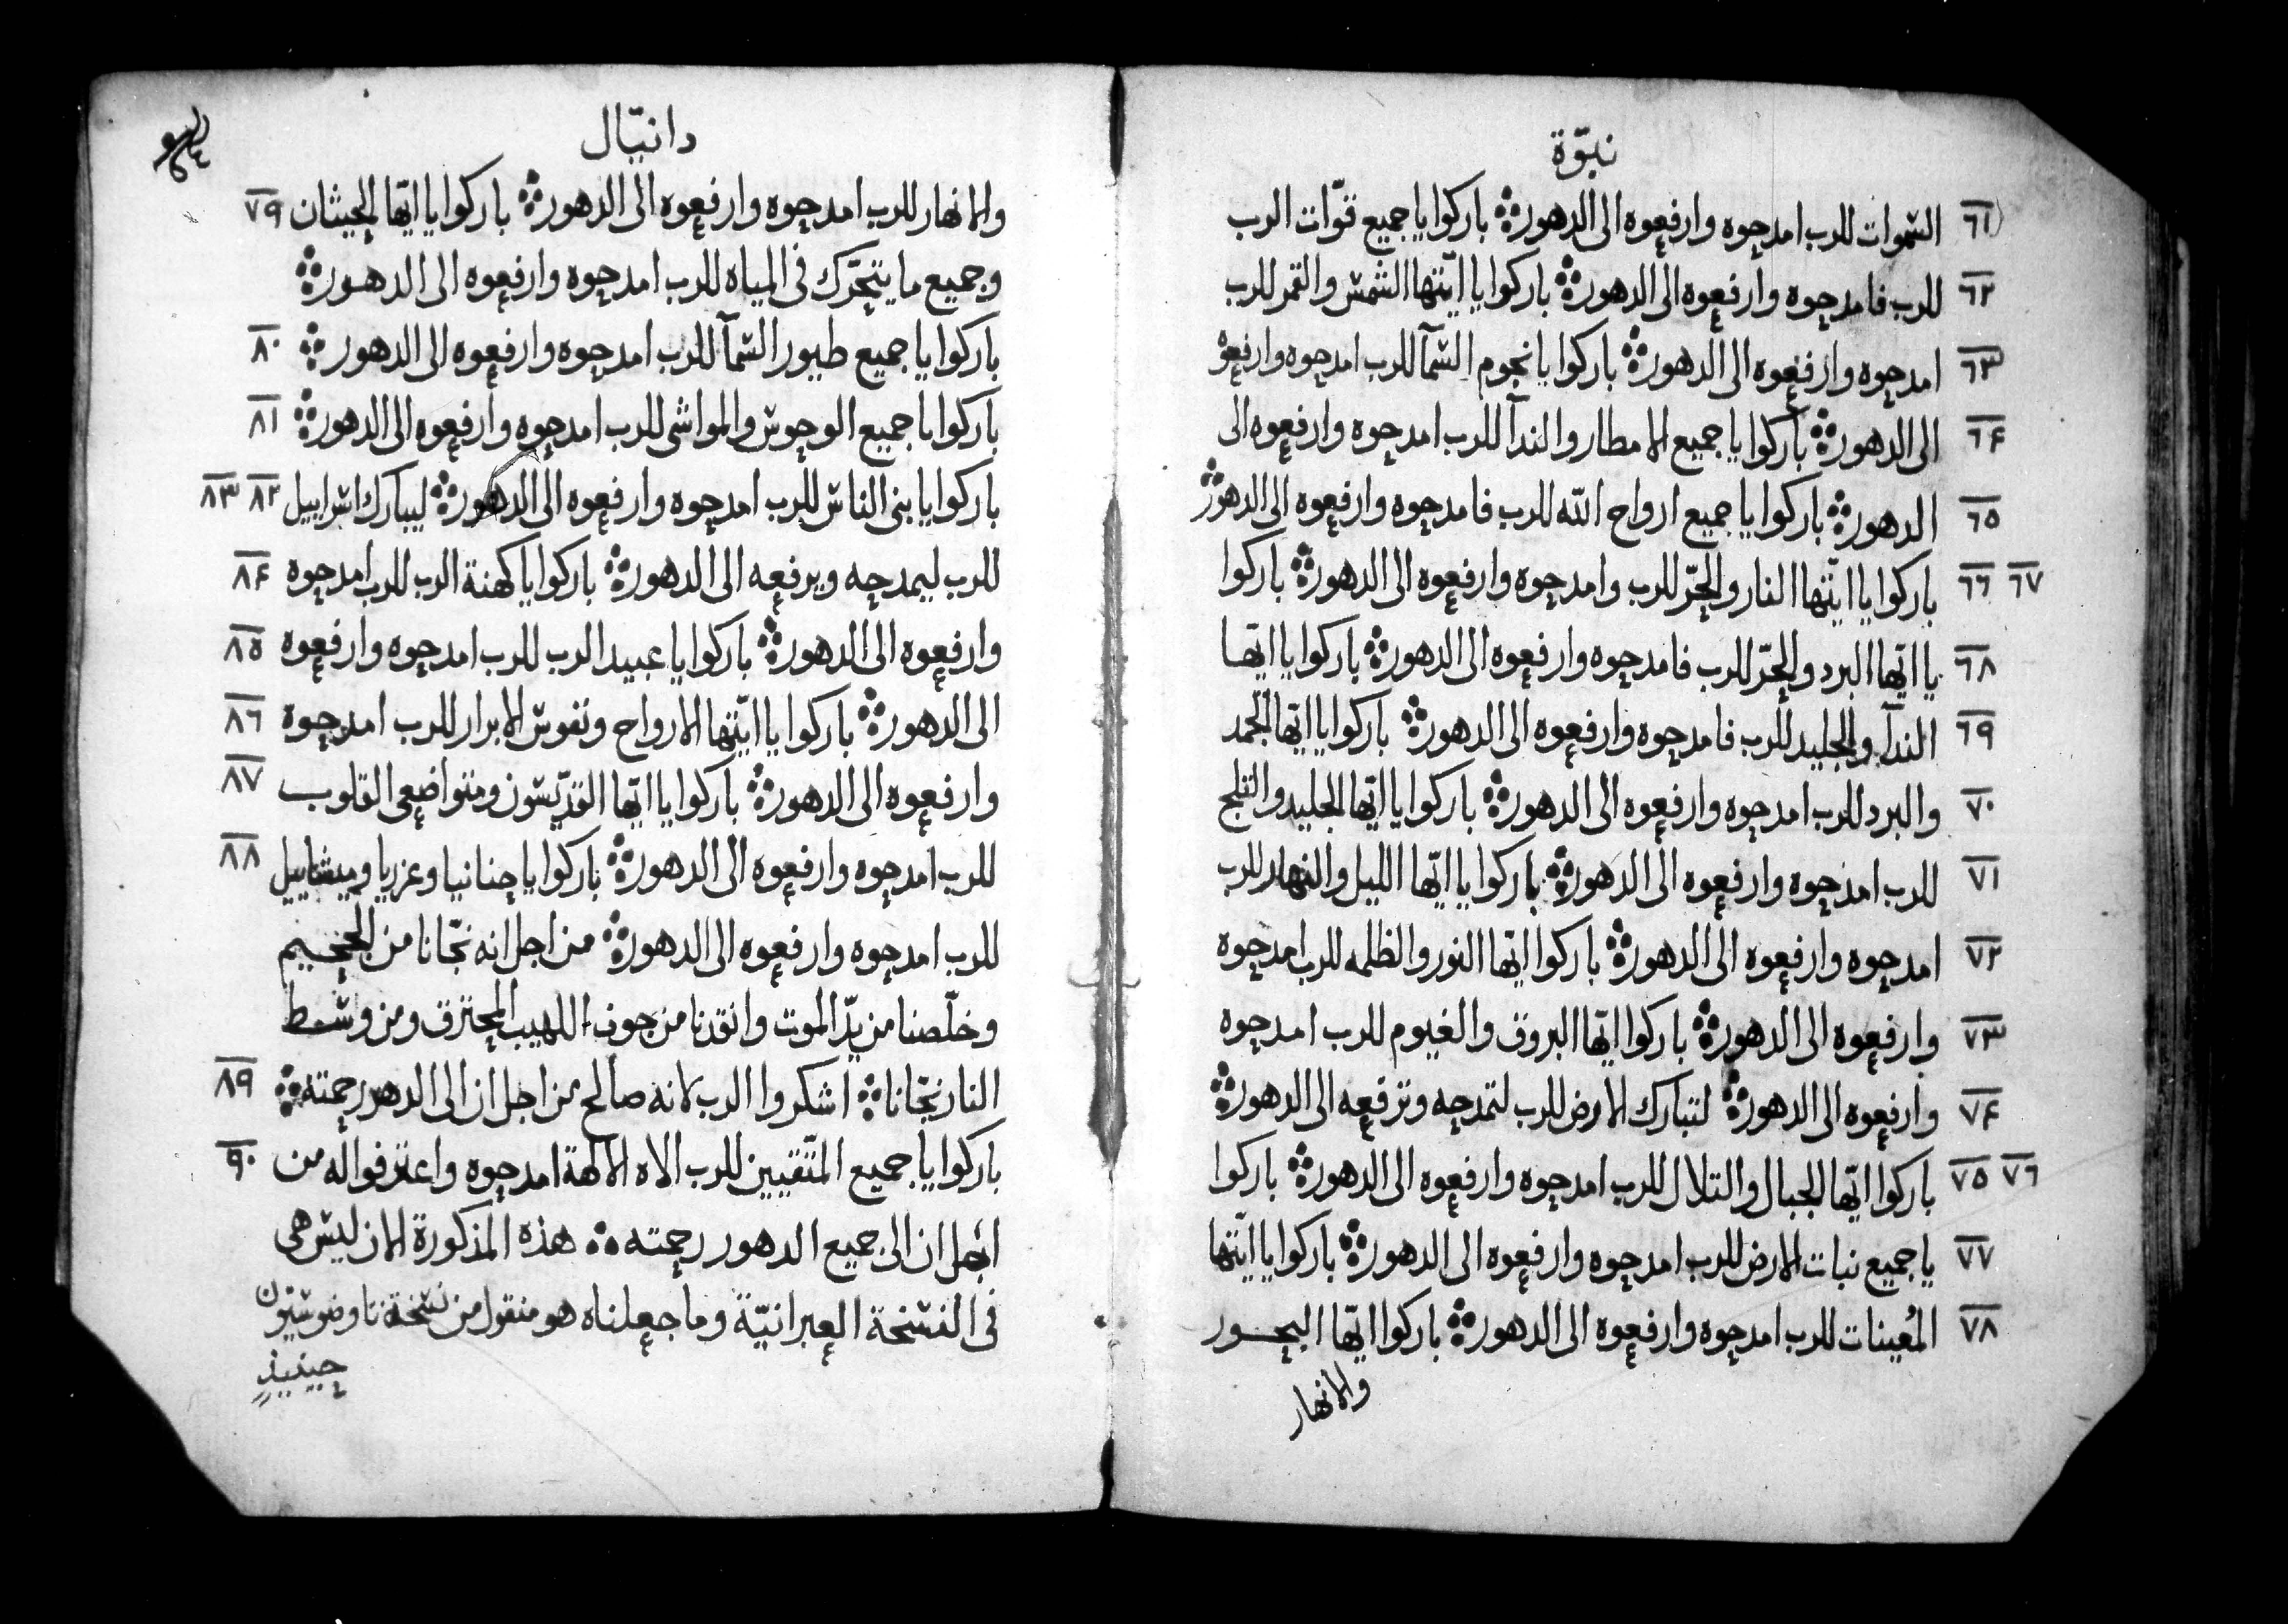 نبوّة
٦١ السموات للرب امدحوه وارفعوه الى الدهور باركوا يا جميع قوّات الرب
٦٢ للرب فامدحوه وارفعوه الى الدهور باركوا يا ايّتها الشمس والقمر للرب
٦٣ امدحوه وارفعوه الى الدهور باركوا يا نجوم السمآ للرب امدحوه وارفعوه
٦۴ الى الدهور باركوا يا جميع الامطار والندآ للرب امدحوه وارفعوه الى
٦٥ الدهور باركوا يا جميع ارواح الله للرب فامدحوه وارفعوه الى الدهور
٦٦ ٦٧ باركوا يا ايّتها النار والحرّ للرب وامدحوه وارفعوه الى الدهور باركوا
٦٨ يا ايّها البرد والحرّ للرب فامدحوه وارفعوه الى الدهور باركوا يا ايّها
٦٩ الندآ والجليد للرب فامدحوه وارفعوه الى الدهور باركوا يا ايّها الجمد
٧٠ والبرد للرب امدحوه وارفعوه الى الدهور باركوا يا ايّها الجليد والثلج
٧١ للرب امدحوه وارفعوه الى الدهور باركوا يا ايّها الليل والنهار للرب
٧٢ امدحوه وارفعوه الى الدهور باركوا ايّها النور والظلمه للرب امدحوه
٧٣ وارفعوه الى الدهور باركوا ايّها البروق والغيوم للرب امدحوه
٧۴ وارفعوه الى الدهور لتبارك الارض للرب لتمدحه وترفعه الى الدهور
٧٥ ٧٦ باركوا ايّها الجبال والتلال للرب امدحوه وارفعوه الى الدهور باركوا
٧٧ يا جميع نبات الارض للرب امدحوه وارفعوه الى الدهور باركوا يا ايّتها
٧٨ المُعينات للرب امدحوه وارفعوه الى الدهور باركوا ايّها البحور
والانهار
دانيّال
والانهار للرب امدحوه وارفعوه الى الدهور باركوا يا ايّها الحيثان ٧٩
وجميع ما يتحرّك فى المياه للرب امدحوه وارفعوه الى الدهور
باركوا يا جميع طيور السمآ للرب امدحوه وارفعوه الى الدهور ٨٠
باركوا يا جميع الوحوش والمواشى للرب امدحوه وارفعوه الى الدهور ٨١
باركوا يا بنى الناس للرب امدحوه وارفعوه الى الدهور ليبارك اسراييل ٨٢ ٨٣
للرب ليمدحه ويرفعه الى الدهور باركوا يا كهنة الرب للرب امدحوه ٨۴
وارفعوه الى الدهور باركوا يا عبيد الرب للرب امدحوه وارفعوه ٨٥
الى الدهور باركوا يا ايّتها الارواح ونفوس الابرار للرب امدحوه ٨٦
وارفعوه الى الدهور باركوا يا ايّها القدّيسون ومتواضعى القلوب ٨٧
للرب امدحوه وارفعوه الى الدهور باركوا يا حنانيا وعزريا وميشاييل ٨٨
للرب امدحوه وارفعوه الى الدهور من اجل انه نجّانا من الجحيم
وخلّصنا من يدّ الموت وانقدنا من جوف اللهيب المحترق ومن وسط
النار نجّانا اشكروا الرب لانه صالح من اجل ان الى الدهر رحمته ٨٩
باركوا يا جميع المتّقيين للرب الاه الآلهة امدحوه واعترفوا له من ٩٠
اجل ان الى جميع الدهور رحمته هذه المذكورة الان ليس هى
فى النسخة العبرانيّة وما جعلناه هو منقول من نسخة تاوضوسيّون
حينيذٍ